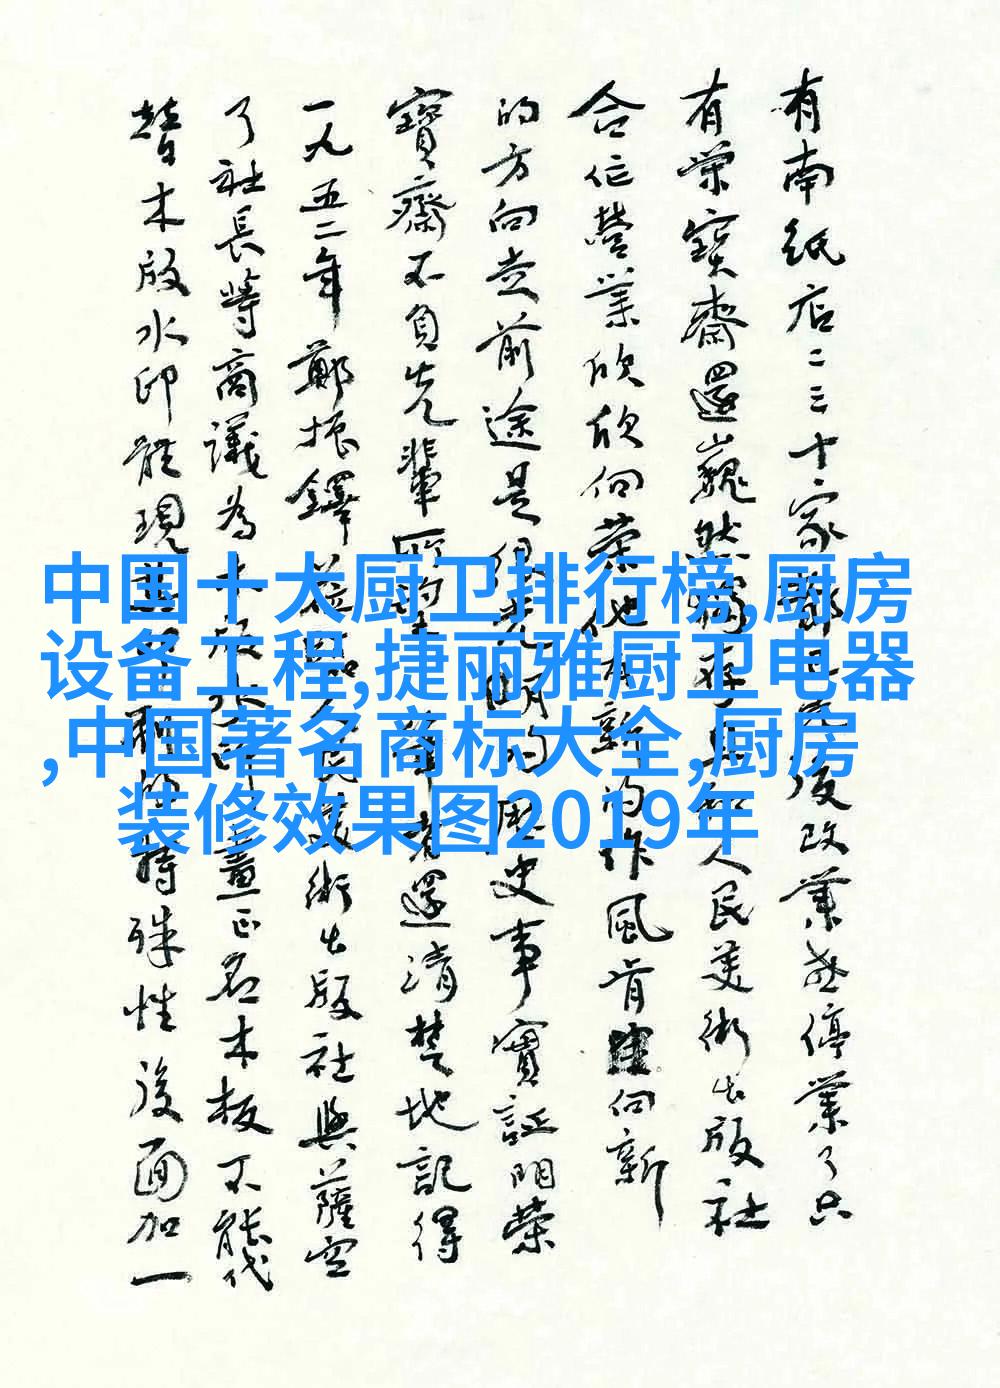 有南纸店二三十家
後改業或停業了只
有榮寶齋還巍然
人民美術出版社
合作營業欣欣向榮他
有新的作風肯向新
的方向走前途是
光明的歷史事實証明榮
寶齋不負先輩所
者還清楚地記得
一九五二年鄭振鐸
人民美術出版社與薩空
了社長等商議為木版水印
畫正名木板不能代
替木版水印體現
特殊性後面加一
中国十大厨卫排行榜,厨房
设备工程,捷丽雅厨卫电器
,中国著名商标大全,厨房
装修效果图2019年